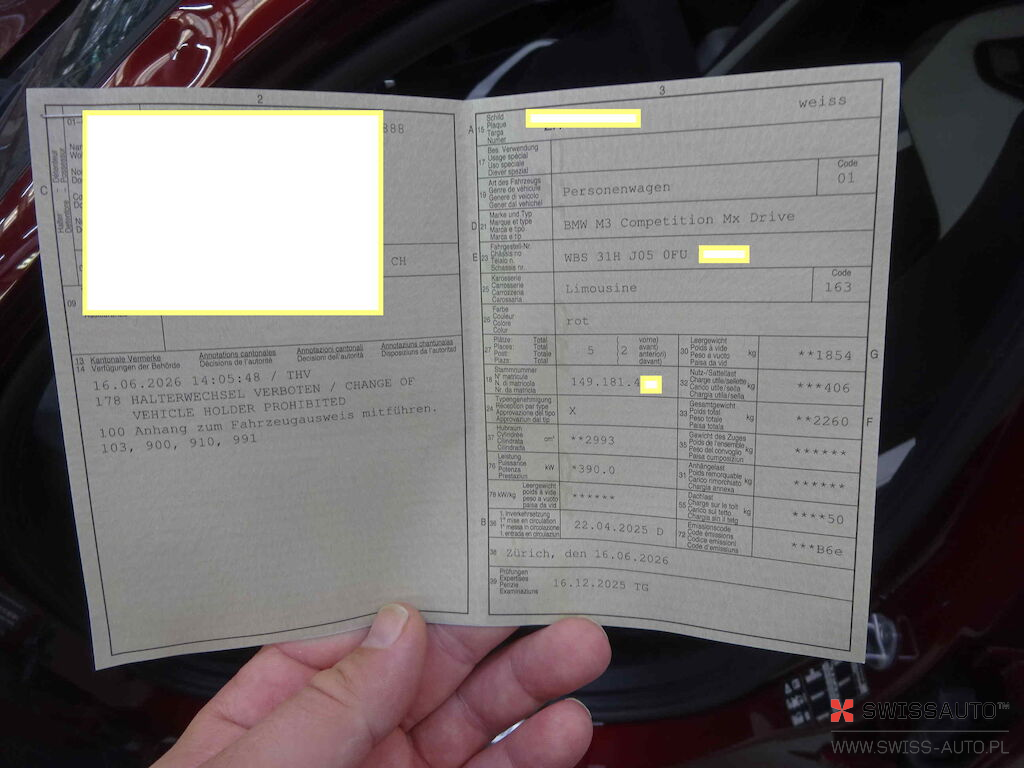 2
888
CH
09
13
14
Kantonale Vermerke
Verfügungen der Behörde
Annotations cantonales
Décisions de l'autorité
Annotazioni cantonali
Decisioni dell'autorità
Annotaziuns chantunalas
Dispositiuns da l'autoritad
16.06.2026 14:05:48 / THV
178 HALTERWECHSEL VERBOTEN / CHANGE OF
VEHICLE HOLDER PROHIBITED
100 Anhang zum Fahrzeugausweis mitführen.
103, 900, 910, 991
C
3
A 15 Schild
Plaque
Targa
Numer
weiss
17 Bes. Verwendung
Usage spécial
Uso speciale
Diever spezial
19 Art des Fahrzeugs
Genre de véhicule
Genere di veicolo
Gener dal vehichel
Personenwagen
Code
01
D 21 Marke und Typ
Marque et type
Marca e tipo
Marca e tip
BMW M3 Competition Mx Drive
E 23 Fahrgestell-Nr.
Châssis no
Telaio n.
Schassis nr.
WBS 31H J05 0FU
25 Karosserie
Carrosserie
Carrozzeria
Carossaria
Limousine
Code
163
26 Farbe
Couleur
Colore
Colur
rot
27 Plätze: Total
Places: Total
Posti: Totale
Plazs: Total
5
2
vorne)
avant)
anteriori)
davant)
30 Leergewicht
Poids à vide
Peso a vuoto
Paisa da vid
kg
**1854
G
18 Stammnummer
N° matricule
N. di matricola
Nr. da matricla
149.181.4
32 Nutz-/Sattellast
Charge utile/sellette
Carico utile/sella
Chargia utila/sella
kg
***406
24 Typengenehmigung
Réception par type
Approvazione del tipo
Approvaziun dal tip
X
33 Gesamtgewicht
Poids total
Peso totale
Paisa totala
kg
**2260
F
37 Hubraum
Cylindrée
Cilindrata
Cilindrada
cm³
**2993
35 Gewicht des Zuges
Poids de l'ensemble
Peso del convoglio
Paisa cumposiziun
kg
******
76 Leistung
Puissance
Potenza
Prestaziun
kW
*390.0
31 Anhängelast
Poids remorquable
Carico rimorchiato
Chargia annexa
kg
******
78 kW/kg
Leergewicht
poids à vide
peso a vuoto
paisa da vid
******
55 Dachlast
Charge sur le toit
Carico sul tetto
Chargia sin il tetg
kg
****50
B 36 1. Inverkehrsetzung
1re mise en circulation
1a messa in circolazione
1. entrada en circulaziun
22.04.2025 D
72 Emissionscode
Code émissions
Codice emissioni
Code d'emissiuns
***B6e
38 Zürich, den 16.06.2026
39 Prüfungen
Expertises
Perizie
Examinaziuns
16.12.2025 TG
SWISSAUTO™
WWW.SWISS-AUTO.PL